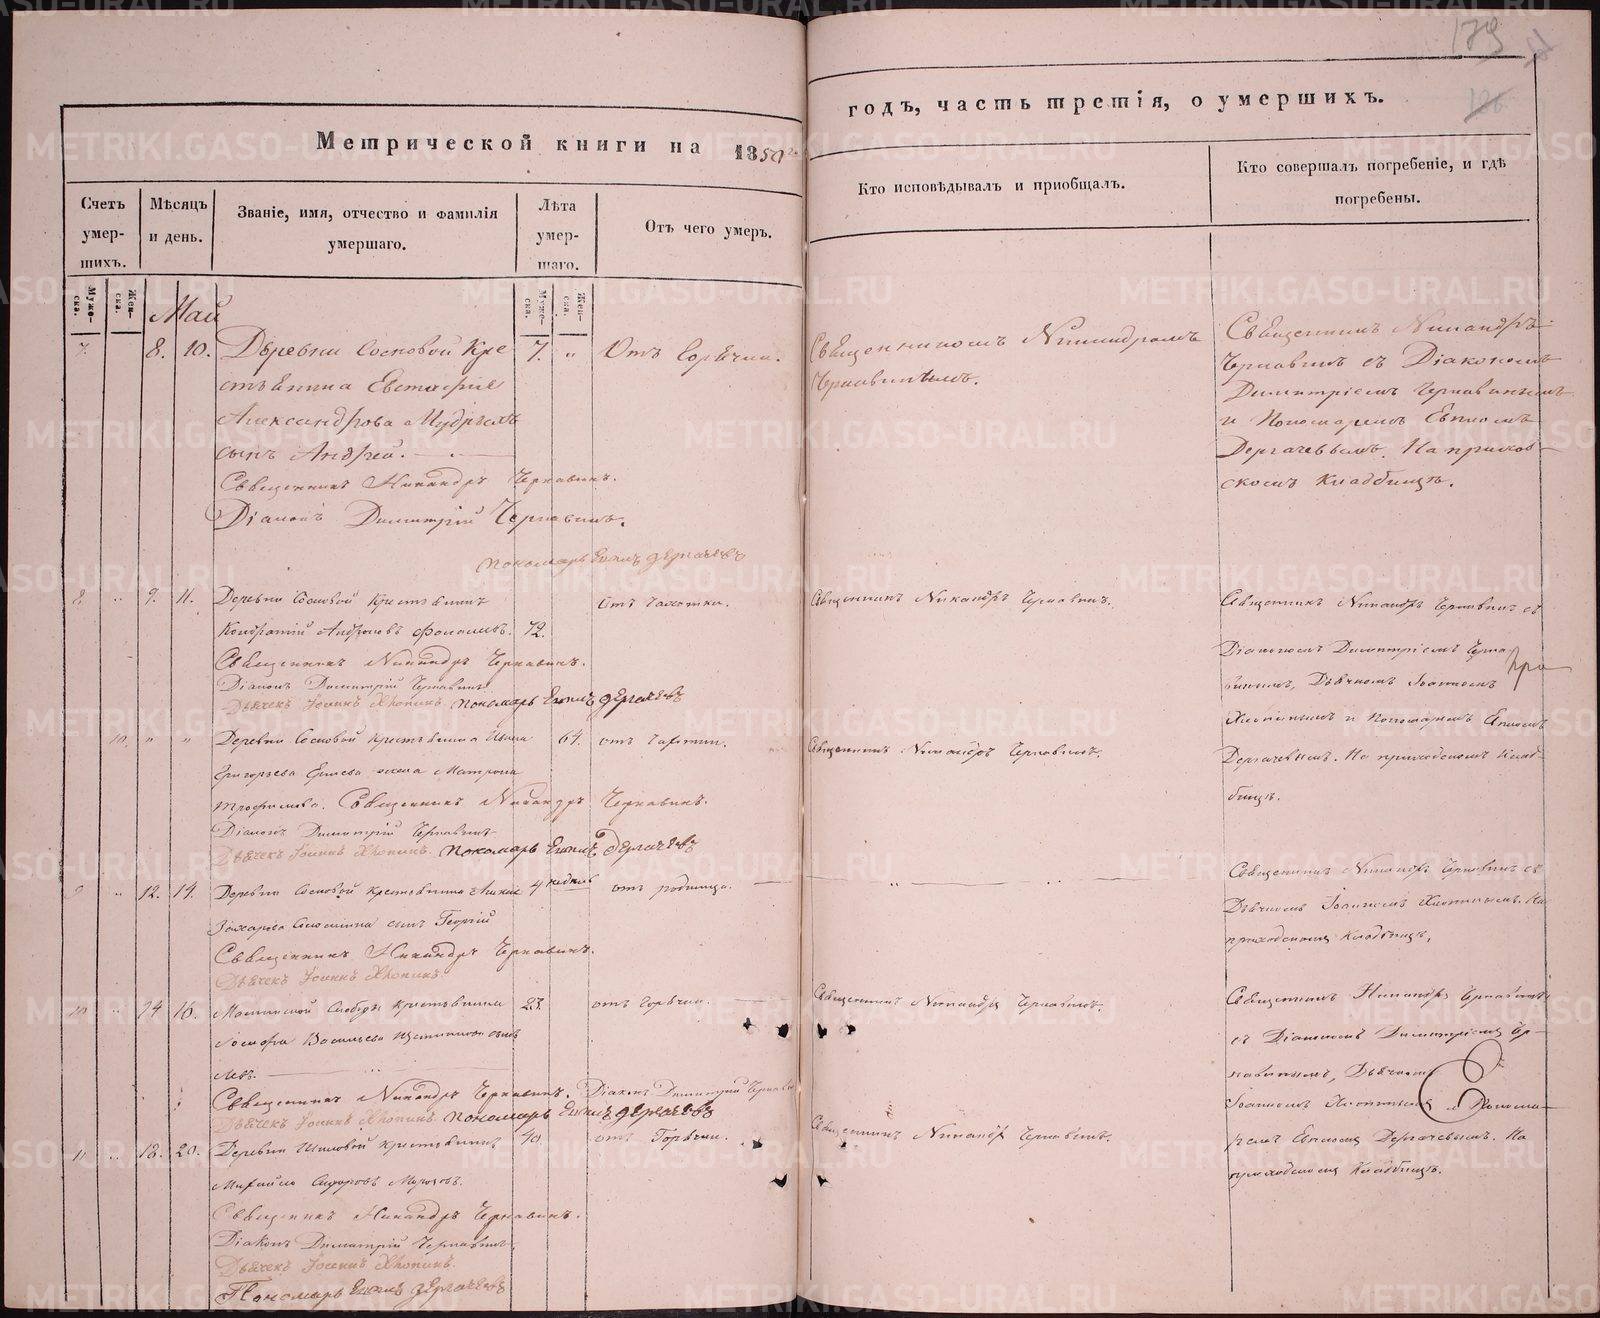 179
126
Метрической книги на 1850
годъ, часть третія, о умершихъ.
Счетъ умер-шихъ.
Мѣсяцъ и день.
Званіе, имя, отчество и фамилія умершаго.
Лѣта умер-шаго.
Отъ чего умеръ.
Кто исповѣдывалъ и пріобщалъ.
Кто совершалъ погребеніе, и гдѣ погребены.
Муже-ска.
Жен-ска.
Муже-ска.
Жен-ска.
Май
7. 8. 10. Деревни Сосновой Кре
7. „ Отъ Горячки.
стьянина Евстафія
Александрова
сынъ Андрей.
Священникъ Никандръ Чернавинъ.
Діаконъ Димитрій Чернавинъ.
пономарь Евплъ Дергачевъ
Священникомъ Никандромъ
Чернавинымъ.
Священникъ Никандръ
Чернавинъ съ Діакономъ
Димитріемъ Чернавинымъ
и Пономаремъ Евпломъ
Дергачевымъ. На приход-
скомъ Кладбищѣ.
8. „ 9. 11. Деревни Сосновой Крестьянинъ
Кондратій 72.
отъ чахотки.
Священникъ Никандръ Чернавинъ.
Діаконъ Димитрій Чернавинъ
Дьячекъ Іоаннъ Хлопинъ. пономарь Евплъ Дергачевъ
Священникъ Никандръ Чернавинъ.
Священникъ Никандръ Чернавинъ съ
Діакономъ Димитріемъ Черна
винымъ, Дьячкомъ Іоанномъ
Хлопинымъ и Пономаремъ Евпломъ
Дергачевымъ. На приходскомъ Клад-
бищѣ.
10. „ „ Деревни Сосновой Крестьянина Ивана 64.
Григорьева жена Матрона
Трофимова. Священникъ Никандръ Чернавинъ.
Діаконъ Димитрій Чернавинъ
Дьячекъ Іоаннъ Хлопинъ. пономарь Евплъ Дергачевъ
Священникъ Никандръ Чернавинъ.
9 „ 12. 14. Деревни Сосновой Крестьянина
4 недѣль отъ родимца.
Захарова сынъ Георгій
Священникъ Никандръ Чернавинъ.
Дьячекъ Іоаннъ Хлопинъ.
Священникъ Никандръ Чернавинъ съ
Дьячкомъ Іоанномъ Хлопинымъ. На
приходскомъ Кладбищѣ.
10 „ 14. 16. Слободы Крестьянина 23. отъ Горячки.
Васильева сынъ
Священникъ Никандръ Чернавинъ. Діаконъ Димитрій Чернавинъ
Дьячекъ Іоаннъ Хлопинъ. пономарь Евплъ Дергачевъ
Священникъ Никандръ Чернавинъ.
Священникъ Никандръ Чернавинъ
съ Діакономъ Димитріемъ Чер-
навинымъ, Дьячкомъ
Іоанномъ Хлопинымъ и Понома-
ремъ Евпломъ Дергачевымъ. На
приходскомъ Кладбищѣ.
11 „ 18. 20. Деревни Крестьянинъ 40. отъ Горячки.
Михайло Морозовъ.
Священникъ Никандръ Чернавинъ.
Діаконъ Димитрій Чернавинъ.
Дьячекъ Іоаннъ Хлопинъ.
Пономарь Евплъ Дергачевъ
Священникъ Никандръ Чернавинъ.
METRIKI.GASO-URAL.RU